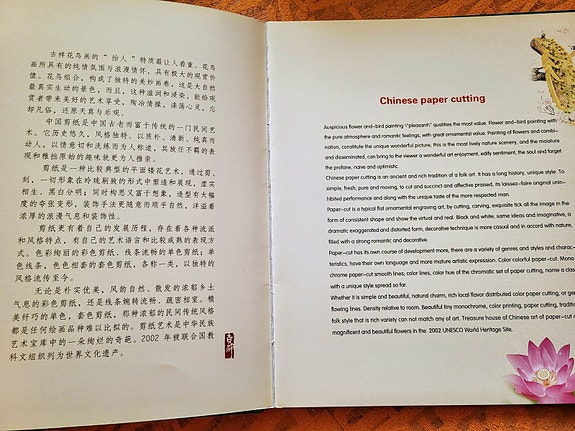 吉祥花鸟画的“怡人”特质最让人看重。花鸟
画所具有的纯情氛围与浪漫情怀，具有极大的观赏价
值。花鸟组合，构成了独特的美妙画卷，这是大自然
最真实生动的景色，而且，这种滋润和浸染，能给观
赏者带来美好的艺术享受，陶冶情操、涤荡心灵，忘
却凡俗，还原天真与乐观。
中国剪纸是中国古老而富于传统的一门民间艺
术。它历史悠久，风格独特。以质朴、清新、纯真而
动人，以情意切和洗练而为人称道，其放任不羁的表
现和稚拙原始的趣味就更为人推崇。
剪纸是一种比较典型的平面镂花艺术，通过剪、
刻，一切形象在玲珑剔致的形式中塑造和展现，虚实
相生，黑白分明；同时构思又富于想象，造型有大幅
度的夸张变形，装饰手法更随意而顺乎自然，洋溢着
浓厚的浪漫气息和装饰性。
剪纸更有着自己的发展历程，存在着各种流派
和风格特点，有自己的艺术语言和比较成熟的表现方
式。色彩绚丽的彩色剪纸、线条流畅的单色剪纸；单
色线条，色色相套的套色剪纸，各称一类，以独特的
风格流传至今。
无论是朴实优美，风韵自然、散发的浓郁乡土
气息的彩色剪纸，还是线条婉转流畅、疏密相宜。精
美纤巧的单色，套色剪纸，那种浓郁的民间传统风格
都是任何绘画品种难以比拟的。剪纸艺术是中华民族
艺术宝库中的一朵绚烂的奇葩。2002 年被联合国教
科文组织列为世界文化遗产。
Chinese paper cutting
Auspicious flower and-bird painting \"pleasant\" qualities the most value. Flower and-bird painting with
the pure atmosphere and romantic feelings, with great ornamental value. Painting of flowers and combi-
nation, constitute the unique wonderful picture, this is the most lively nature scenery, and the moisture
and disseminated, can bring to the viewer a wonderful art enjoyment, edify sentiment, the soul and forget
the profane, naive and optimistic.
Chinese paper cutting is an ancient and rich tradition of a folk art. It has a long history, unique style. To
simple, fresh, pure and moving, to cut and succinct and affective praised, its laissez-faire original unin-
hibited performance and along with the unique taste of the more respected man.
Paper-cut is a typical flat ornamental engraving art, by cutting, carving, exquisite tick all the image in the
form of consistent shape and show the virtual and real. Black and white, same ideas and imaginative, a
dramatic exaggerated and distorted form, decorative technique is more casual and in accord with nature,
filled with a strong romantic and decorative.
Paper-cut has its own course of development more, there are a variety of genres and styles and charac-
teristics, have their own language and more mature artistic expression. Color colorful paper-cut. Mono-
chrome paper-cut smooth lines; color lines, color hue of the chromatic set of paper cutting, name a class,
with a unique style spread so far.
Whether it is simple and beautiful, natural charm, rich local flavor distributed color paper-cut, or gen
flowing lines. Density relative to room. Beautiful tiny monochrome, color printing, paper cutting, tradit
folk style that is rich variety can not match any of art. Treasure house of Chinese art of paper-cut a
magnificent and beautiful flowers in the. 2002 UNESCO World Heritage Site.